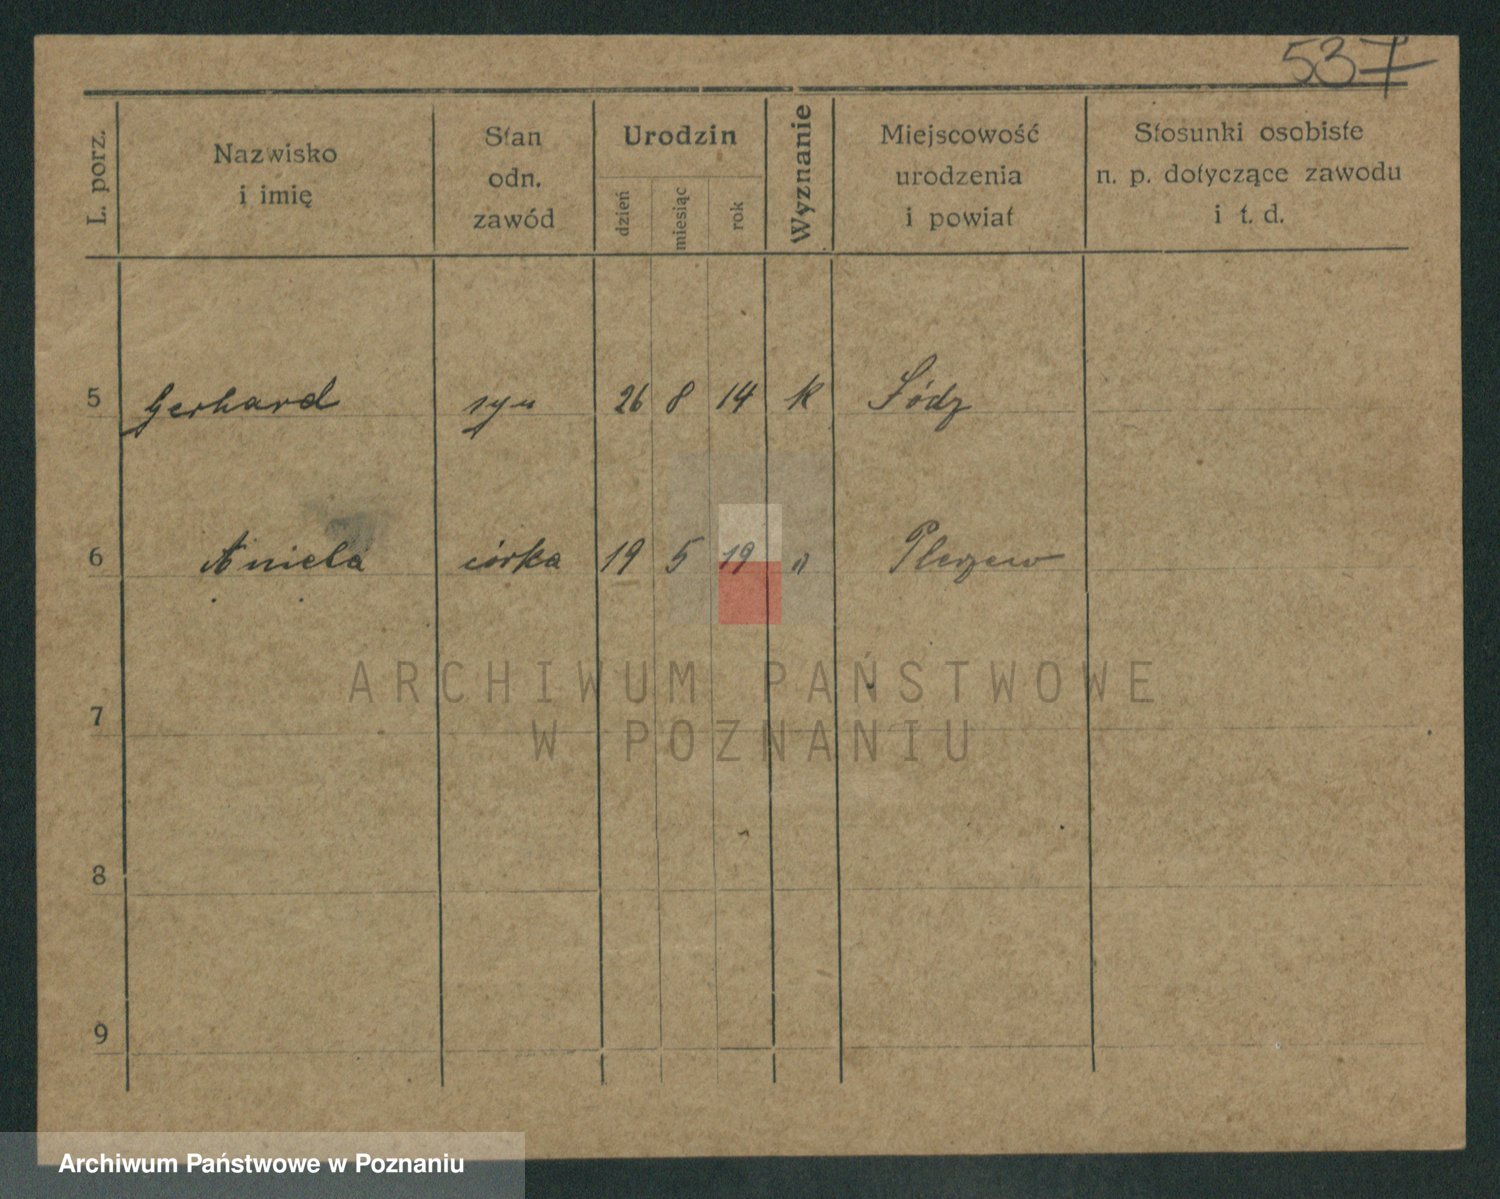 537
L. porz.
Nazwisko
i imię
Stan
odn.
zawód
Urodzin
dzień
miesiąc
rok
Wyznanie
Miejscowość
urodzenia
i powiat
Stosunki osobiste
n. p. dotyczące zawodu
i t. d.
5 Gerhard syn 26 8 14 k Łódz
6 Aniela córka 19 5 19 " Pleszew
ARCHIWUM PAŃSTWOWE
W POZNANIU
7
8
9
Archiwum Państwowe w Poznaniu